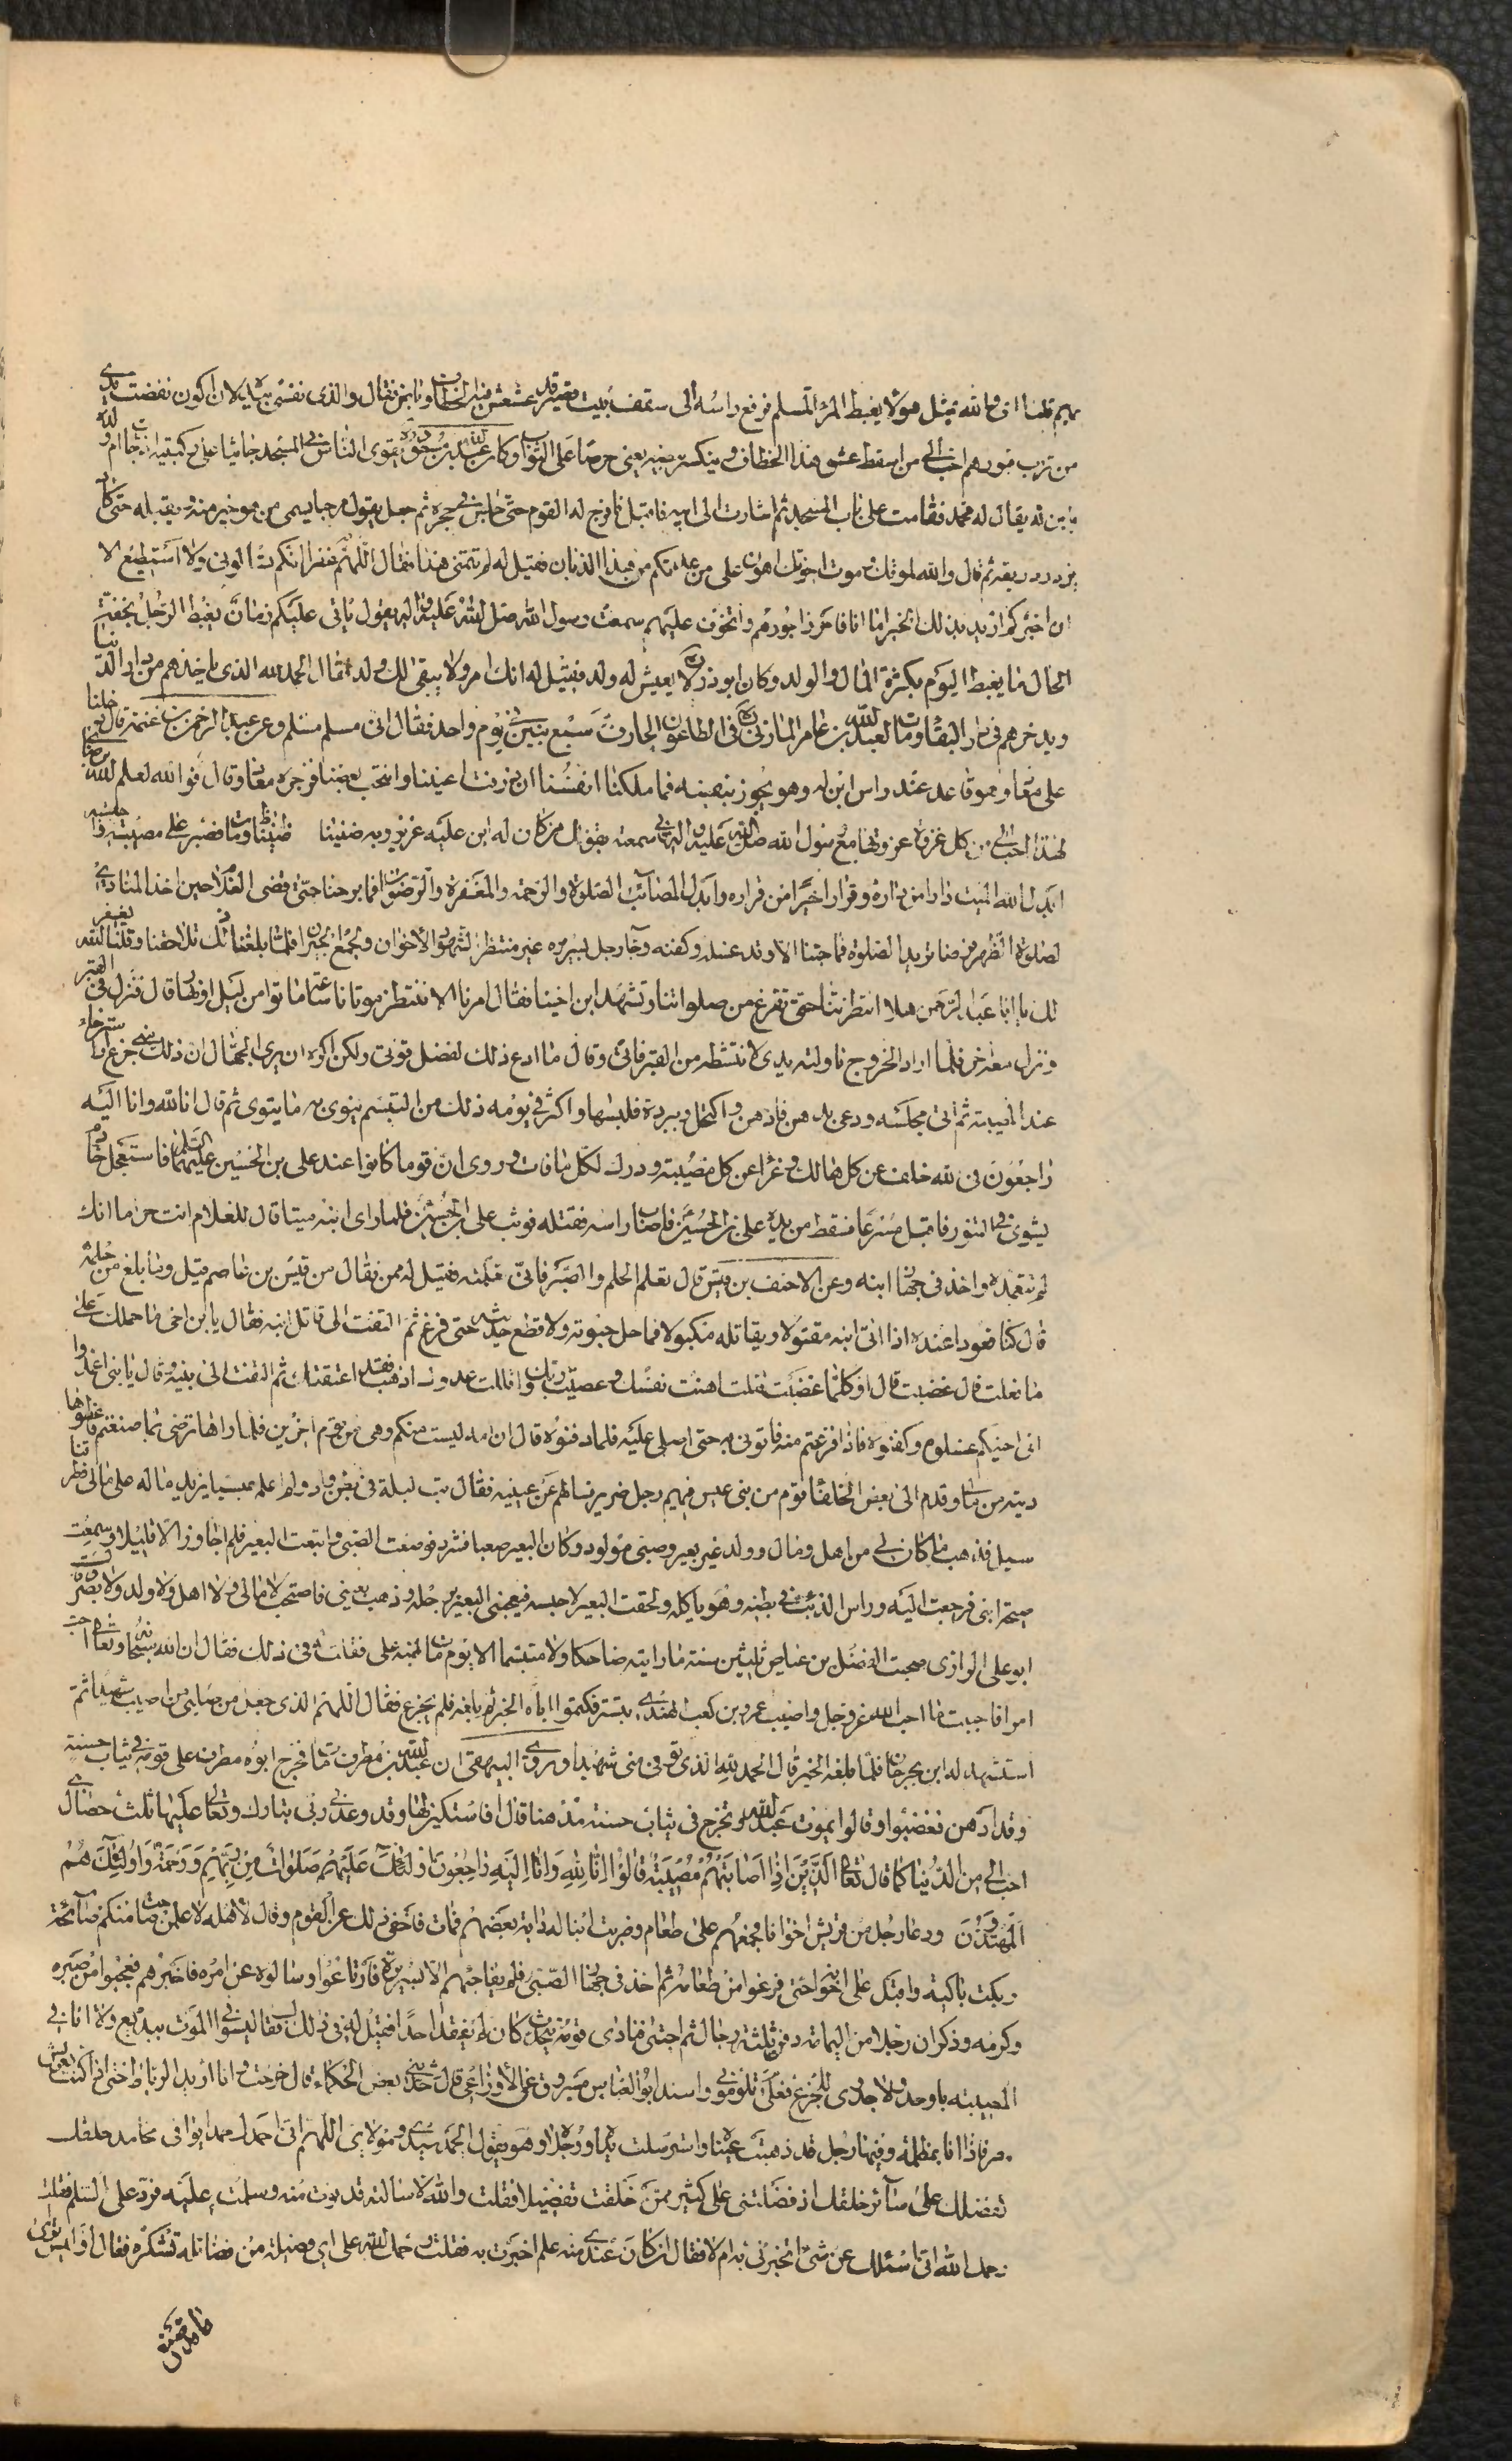 بهم قلنا اى والله بمثل هؤلاء يغبط المرء المسلم فرفع راسه الى سقف بيت قصير قد عشعش فيه الخطاف وباض فقال والذى نفسى بيده لان اكون نفضت يدى
من ترب قبورهم احب الى من ان يسقط عش هذا الخطاف وينكسر بيضه يعنى حرصا على الثواب وكان عبد الله بن مسعود يقرى الناس فى المسجد جاثيا على ركبتيه اذ جاءت ام ولده
بابن له يقال له محمد فقامت على باب المسجد ثم اشارت الى ابيه فاقبل فافرج له القوم حتى جلس فى حجره ثم جعل يقول مرحبا بسمى من هو خير منه ويقبله حتى كاد
يزدرد ريقه ثم قال والله لموتك وموت اخوتك اهون على من عدتكم من هذا الذبان فقيل له لم تتمنى هذا فقال اللهم غفرا انكم تسألونى ولا استطيع الا
ان اخبركم اريد بذلك الخير اما انا فاحرز اجورهم واتخوف عليهم سمعت رسول الله صلى الله عليه واله يقول ياتى عليكم زمان يغبط الرجل بخفة
الحال كما يغبط اليوم بكثرة المال والولد وكان ابوذر ره لا يعيش له ولد فقيل له انك امرؤ لا يبقى لك ولد فقال الحمد لله الذى ياخذهم من دار الفنا
ويدخرهم فى دار البقا ومات لعبد الله بن عامر المازنى ره فى الطاعون الجارف سبع بنين فى يوم واحد فقال انى مسلم مسلم وعن عبد الرحمن بن غنم قال دخلنا
على معاذ وهو قاعد عند راس ابن له وهو يجود بنفسه فما ملكنا انفسنا ان ذرفت اعيننا وانتحب بعضنا فزجره معاذ وقال مه فوالله ليعلم الله برضاى
لهذا احب الى من كل غزوة غزوتها مع رسول الله صلى الله عليه واله فانى سمعته يقول من كان له ابن عليه عزيز وبه ضنينا ومات فصبر على مصيبته واحتسبه
ابدل الله الميت دارا من داره وقرارا خيرا من قراره وابدل المصاب الصلوة والرحمة والمغفرة والرضوان فما برحنا حتى قضى الغلام حين اخذ المنادى
لصلوة الظهر فرحنا نريد الصلوة فما جئنا الا وقد غسله وكفنه وجاء رجل بسريره غير منتظر لشهود الاخوان ولا لجمع الجيران فلما بلغنا ذلك تلاحقنا وقلنا يغفر الله
لك يا ابا عبد الرحمن هلا انتظرتنا حتى نفرغ من صلواتنا ونشهد ابن اخينا فقال امرنا الا ننتظر موتانا ساعة ماتوا من ليل او نهار قال فنزل فى القبر
ونزل معه اخر فلما اراد الخروج ناولته يدى لانتشطه من القبر فابى وقال ما ادع ذلك لفضل قوتى ولكن اكره ان يرى الجهال ان ذلك منى جزع او استرخاء
عند المصيبة ثم اتى مجلسه ودعى بدهن فادهن وبكحل فاكتحل وببردة فلبسها واكثر فى يومه ذلك من التبسم ينوى به ما ينوى ثم قال انا لله وانا اليه
راجعون فى الله خلف عن كل هالك وعزاء عن كل مصيبة ودرك لكل ما فات وروى ان قوما كانوا عند على بن الحسين عليهما السلام فاستعجل خادما
بشوى فى التنور فاقبل مسرعا فسقط من يده على ابن لعلى بن الحسين فاصاب راسه فقتله فوثب على بن الحسين فلما راى ابنه ميتا قال للغلام انت حر اما انك
لم تتعمده واخذ فى جهاز ابنه وعن الاحنف بن قيس قال تعلم الحلم والصبر فانى تعلمته فقيل له ممن فقال من قيس بن عاصم قيل وما بلغ من حلمه
قال كنا قعودا عنده اذ اتى ابنه مقتولا وبقاتله مكبولا فما حل حبوته ولا قطع حديثه حتى فرغ ثم التفت الى قاتل ابنه فقال يابن اخى ما حملك على
ما فعلت قال غضبت قال او كلما غضبت قتلت اهنت نفسك وعصيت ربك واقللت عددك اذهب فقد اعتقتك ثم التفت الى بنيه وقال يا بنى اغدوا
الى اخيكم غسلوه وكفنوه فاذا فرغتم منه فاتونى به حتى اصلى عليه فلما دفنوه قال ان امه ليست منكم وهى من قوم اخرين فلا اراها ترضى بما صنعتم فاعطوها
ديته من مالى وقدم الى بعض الخلفا قوم من بنى عبس فيهم رجل ضرير فسالهم عن عينيه فقال بت ليلة فى بطن واد ولم اعلم عبسيا يزيد ماله على مالى فطرقنا
سيل فذهب ما كان لى من اهل ومال وولد غير بعير وصبى مولود وكان البعير صعبا فشرد فوضعت الصبى واتبعت البعير فلم اجاوز الا قليلا وسمعت
صيحة ابنى فرجعت اليه وراس الذئب فى بطنه وهو ياكله ولحقت البعير لاحبسه فبعجنى البعير برجله وذهب بعينى فاصبحت لا مال لى ولا اهل ولا ولد ولا بصر
ابو على الرازى صحبت الفضيل بن عياض ثلثين سنة ما رايته ضاحكا ولا متبسما الا يوم مات ابنه على فقلت له فى ذلك فقال ان الله سبحانه وتعالى احب
امرا فاحببت ما احب الله عز وجل واصيب عمرو بن كعب الهندى بتستر فكتموا اباه الخبر ثم بلغه فلم يجزع فقال اللهم الذى جعل من صلبى من اصيب شهيدا ثم
استشهد له ابن بجرجان فلما بلغه الخبر قال الحمد لله الذى توفى منى شهيدا وروى البيهقى ان عبد الله بن مطرف مات فخرج ابوه مطرف على قومه فى ثياب حسنة
وقد ادهن فغضبوا وقالوا يموت عبد الله وتخرج فى ثياب حسنة مدهنا قال افاستكين لها وقد وعدنى ربى تبارك وتعالى عليها ثلث خصال هى
احب الى من الدنيا كما قال تعالى الذين اذا اصابتهم مصيبة قالوا انا لله وانا اليه راجعون اولئك عليهم صلوات من ربهم ورحمة واولئك هم
المهتدون ودعا رجل من قريش اخوانا فجمعهم على طعام وضربت ابنا له دابة بعضهم فمات فاخفى ذلك عن القوم وقال لاهله لا اعلمن صاحت منكم صائحة
وبكت باكية واقبل على اخوانه حتى فرغوا من طعامه ثم اخذ فى جهاز الصبى فلم يفاجئهم الا بسريره فارتاعوا وسالوه عن امره فاخبرهم فعجبوا من صبره
وكرمه وذكر ان رجلا من اليمامة دفن ثلثة رجال ثم احتبى فى نادى قومه يتحدث كان لم يفقد احدا فقيل له فى ذلك فقال ليسوا فى الموت ببديع ولا انا فى
المصيبة باوحد ولا جدوى للجزع فعلى م تلوموننى واسند ابو العباس مسروق عن الاوزاعى قال حدثنى بعض الحكماء قال خرجت وانا اريد الرباط حتى اذا كنت بعريش
مصر فاذا انا بمظلة وفيها رجل قد ذهبت عيناه واسترسلت يداه ورجلاه وهو يقول الحمد سيدى ومولاى اللهم انى احمدك حمدا يوافى محامد خلقك
تفضلك على سآئر خلقك اذ فضلتنى على كثير ممن خلقت تفضيلا فقلت والله لاسالنه قد نوت منه وسلمت عليه فرد على السلم فقلت
رحمك الله انى اسئلك عن شى اتخبرنى به ام لا فقال ان كان عندى منه علم اخبرت به فقلت رحمك الله على اى فضيلة من فضائله تشكره فقال اوليس ترى
ما قد صنع